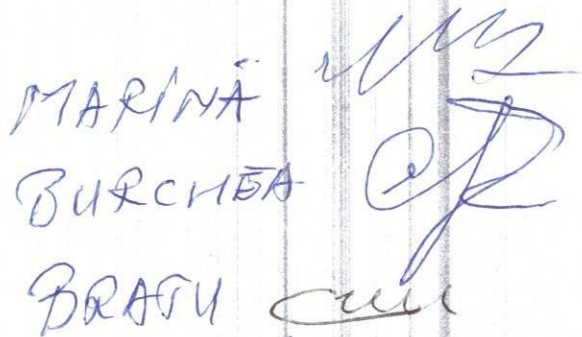 MARINĂ
BURCHEA
BRATU